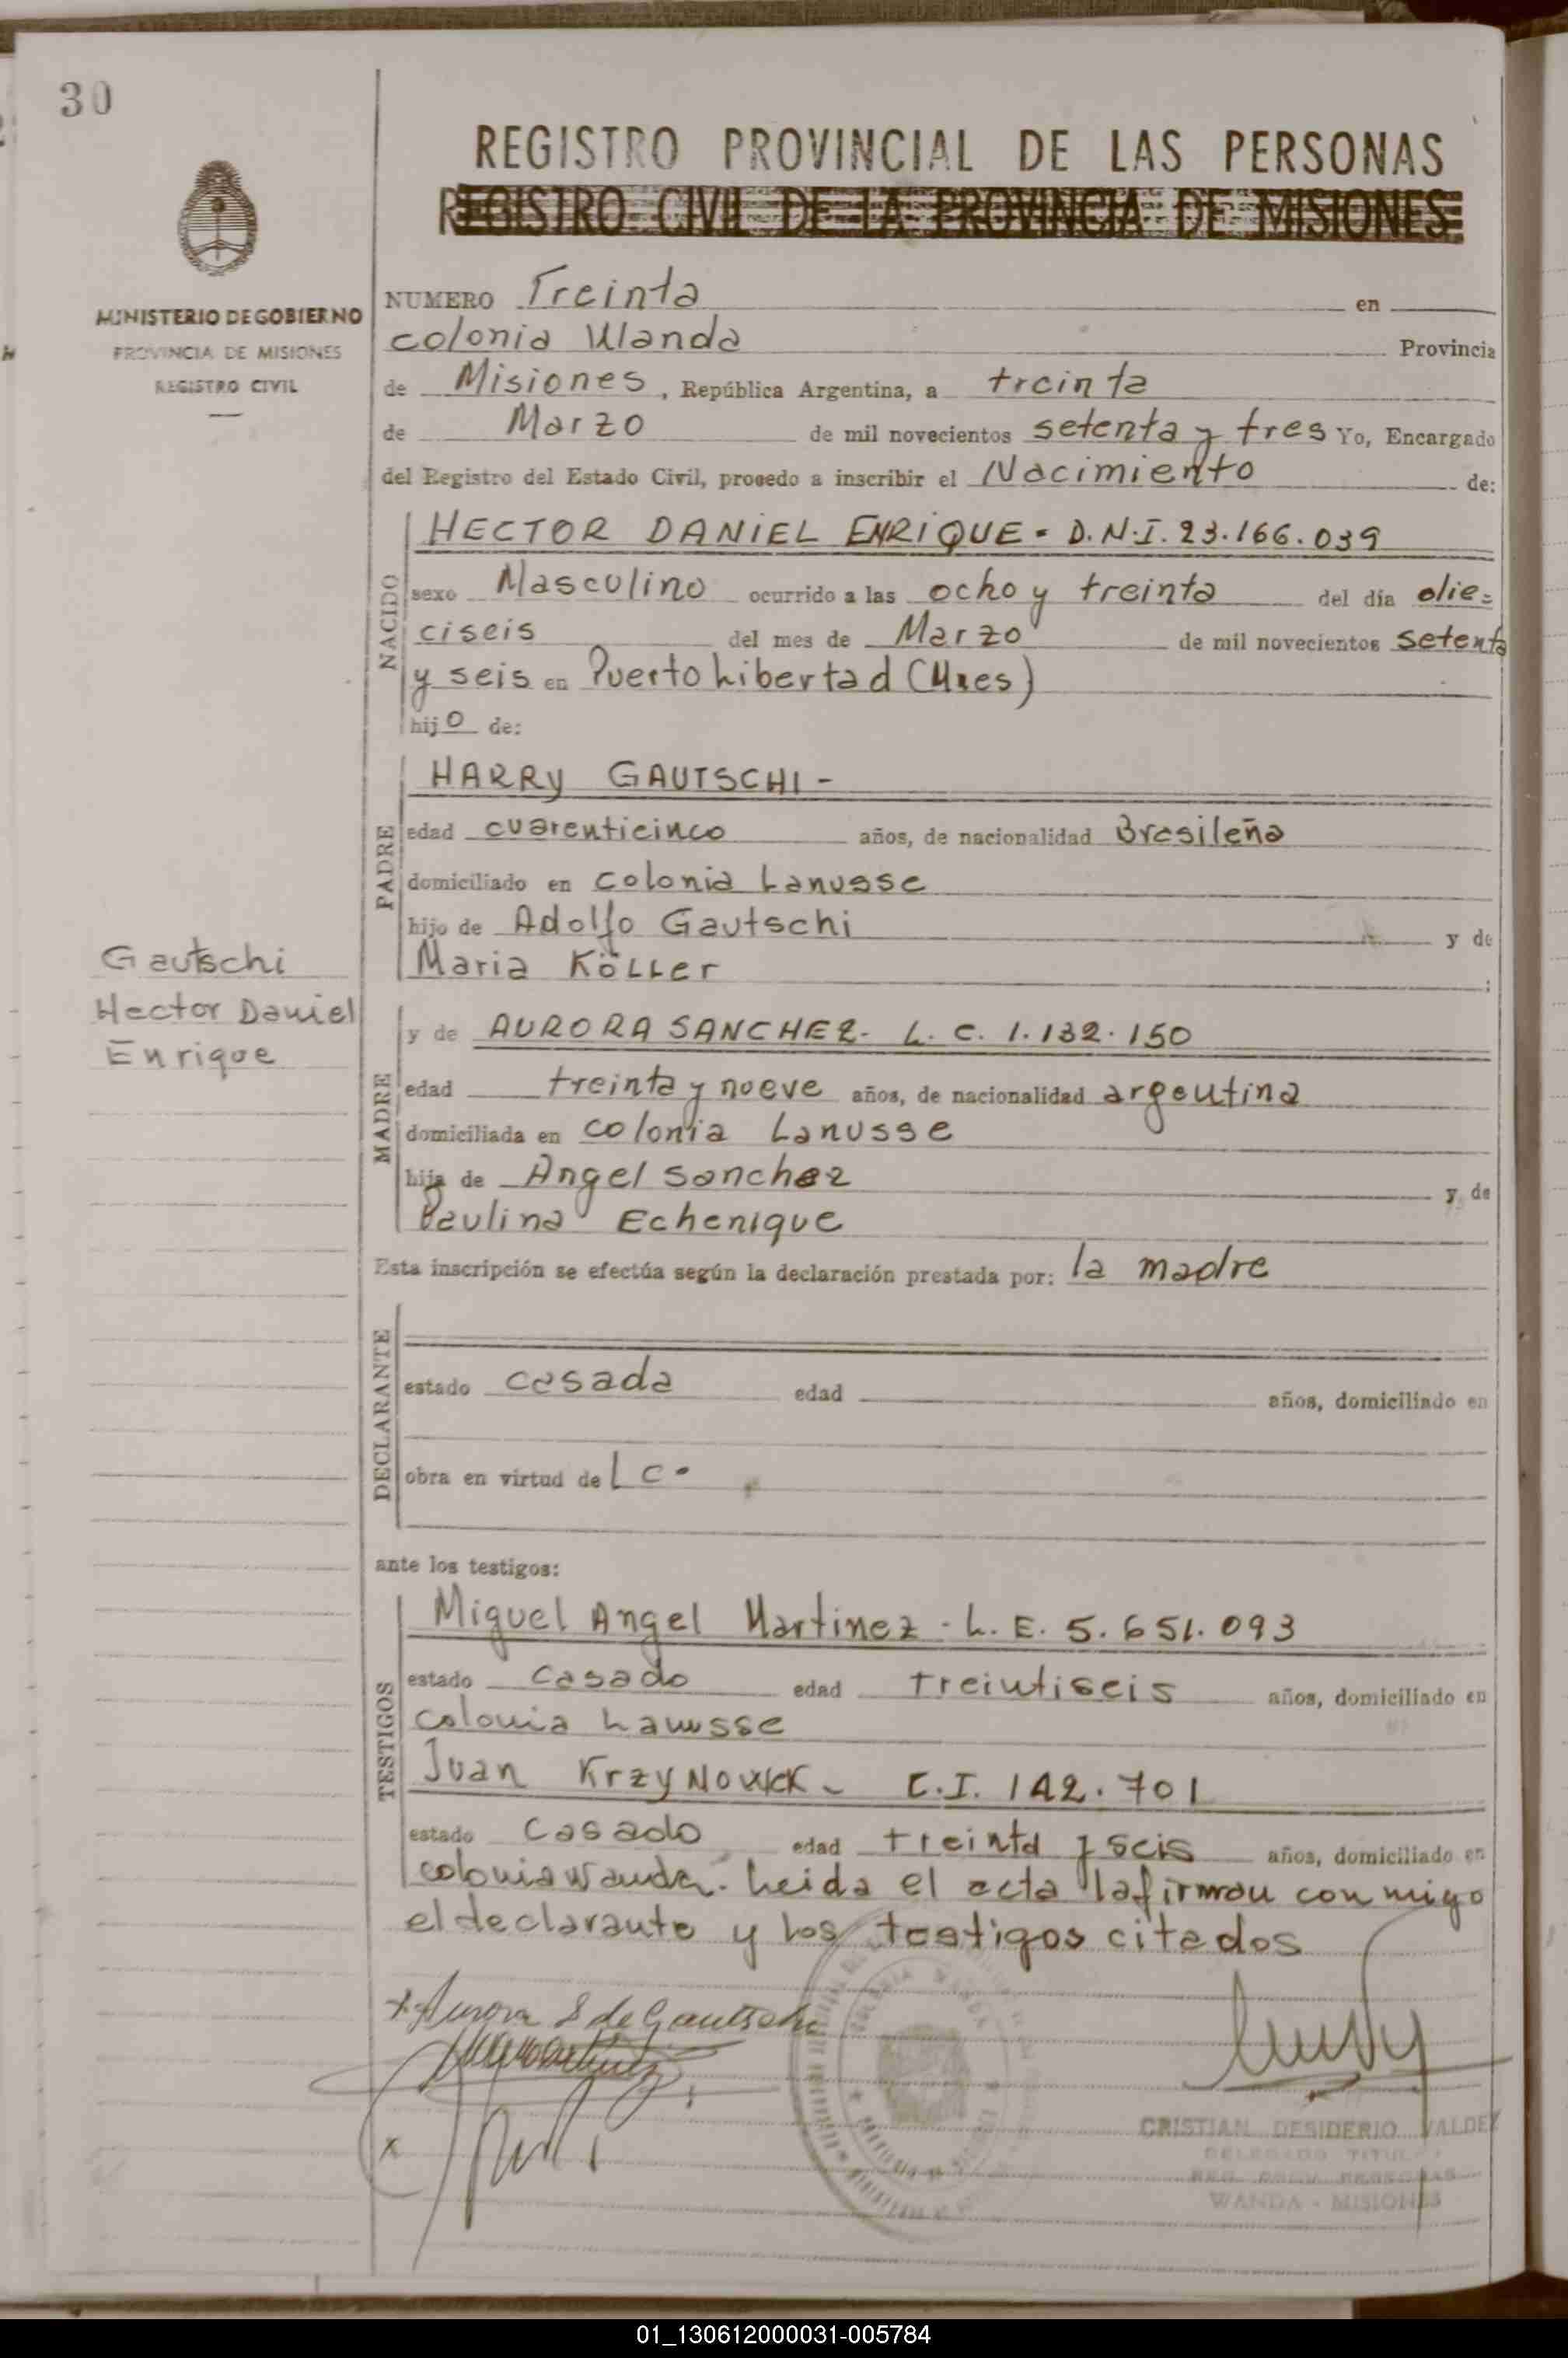 30
REGISTRO PROVINCIAL DE LAS PERSONAS
REGISTRO CIVIL DE LA PROVINCIA DE MISIONES
MINISTERIO DE GOBIERNO
PROVINCIA DE MISIONES
REGISTRO CIVIL
NUMERO Treinta en
colonia Wanda Provincia
de Misiones, República Argentina, a treinta
de Marzo de mil novecientos setenta y tres Yo, Encargado
del Registro del Estado Civil, procedo a inscribir el Nacimiento de:
NACIDO
HECTOR DANIEL ENRIQUE - D.N.I. 23.166.039
sexo Masculino ocurrido a las ocho y treinta del día die=
ciseis del mes de Marzo de mil novecientos setenta
y seis en Puerto Libertad (Mnes)
hijo de:
PADRE
HARRY GAUTSCHI -
edad cuarenticinco años, de nacionalidad Brasileña
domiciliado en colonia Lanusse
hijo de Adolfo Gautschi y de
Maria KöLLer ;
Gautschi
Hector Daniel
Enrique
MADRE
y de AURORA SANCHEZ - L. C. 1.132.150
edad treinta y nueve años, de nacionalidad argentina
domiciliada en colonia Lanusse
hija de Angel Sanchez y de
Paulina Echenique
Esta inscripción se efectúa según la declaración prestada por: la madre
DECLARANTE
estado casada edad años, domiciliado en
obra en virtud de L C -
ante los testigos:
TESTIGOS
Miguel Angel Martinez - L. E. 5.651.093
estado casado edad treintiseis años, domiciliado en
colonia Lanusse
Juan KrzyNowek - C.I. 142.701
estado casado edad treinta y seis años, domiciliado en
colonia Wanda. Leida el acta la firman conmigo
el declarante y los testigos citados
Aurora S de Gautschi
CRISTIAN DESIDERIO VALDEZ
DELEGADO TITUL
WANDA - MISIONES
01_130612000031-005784